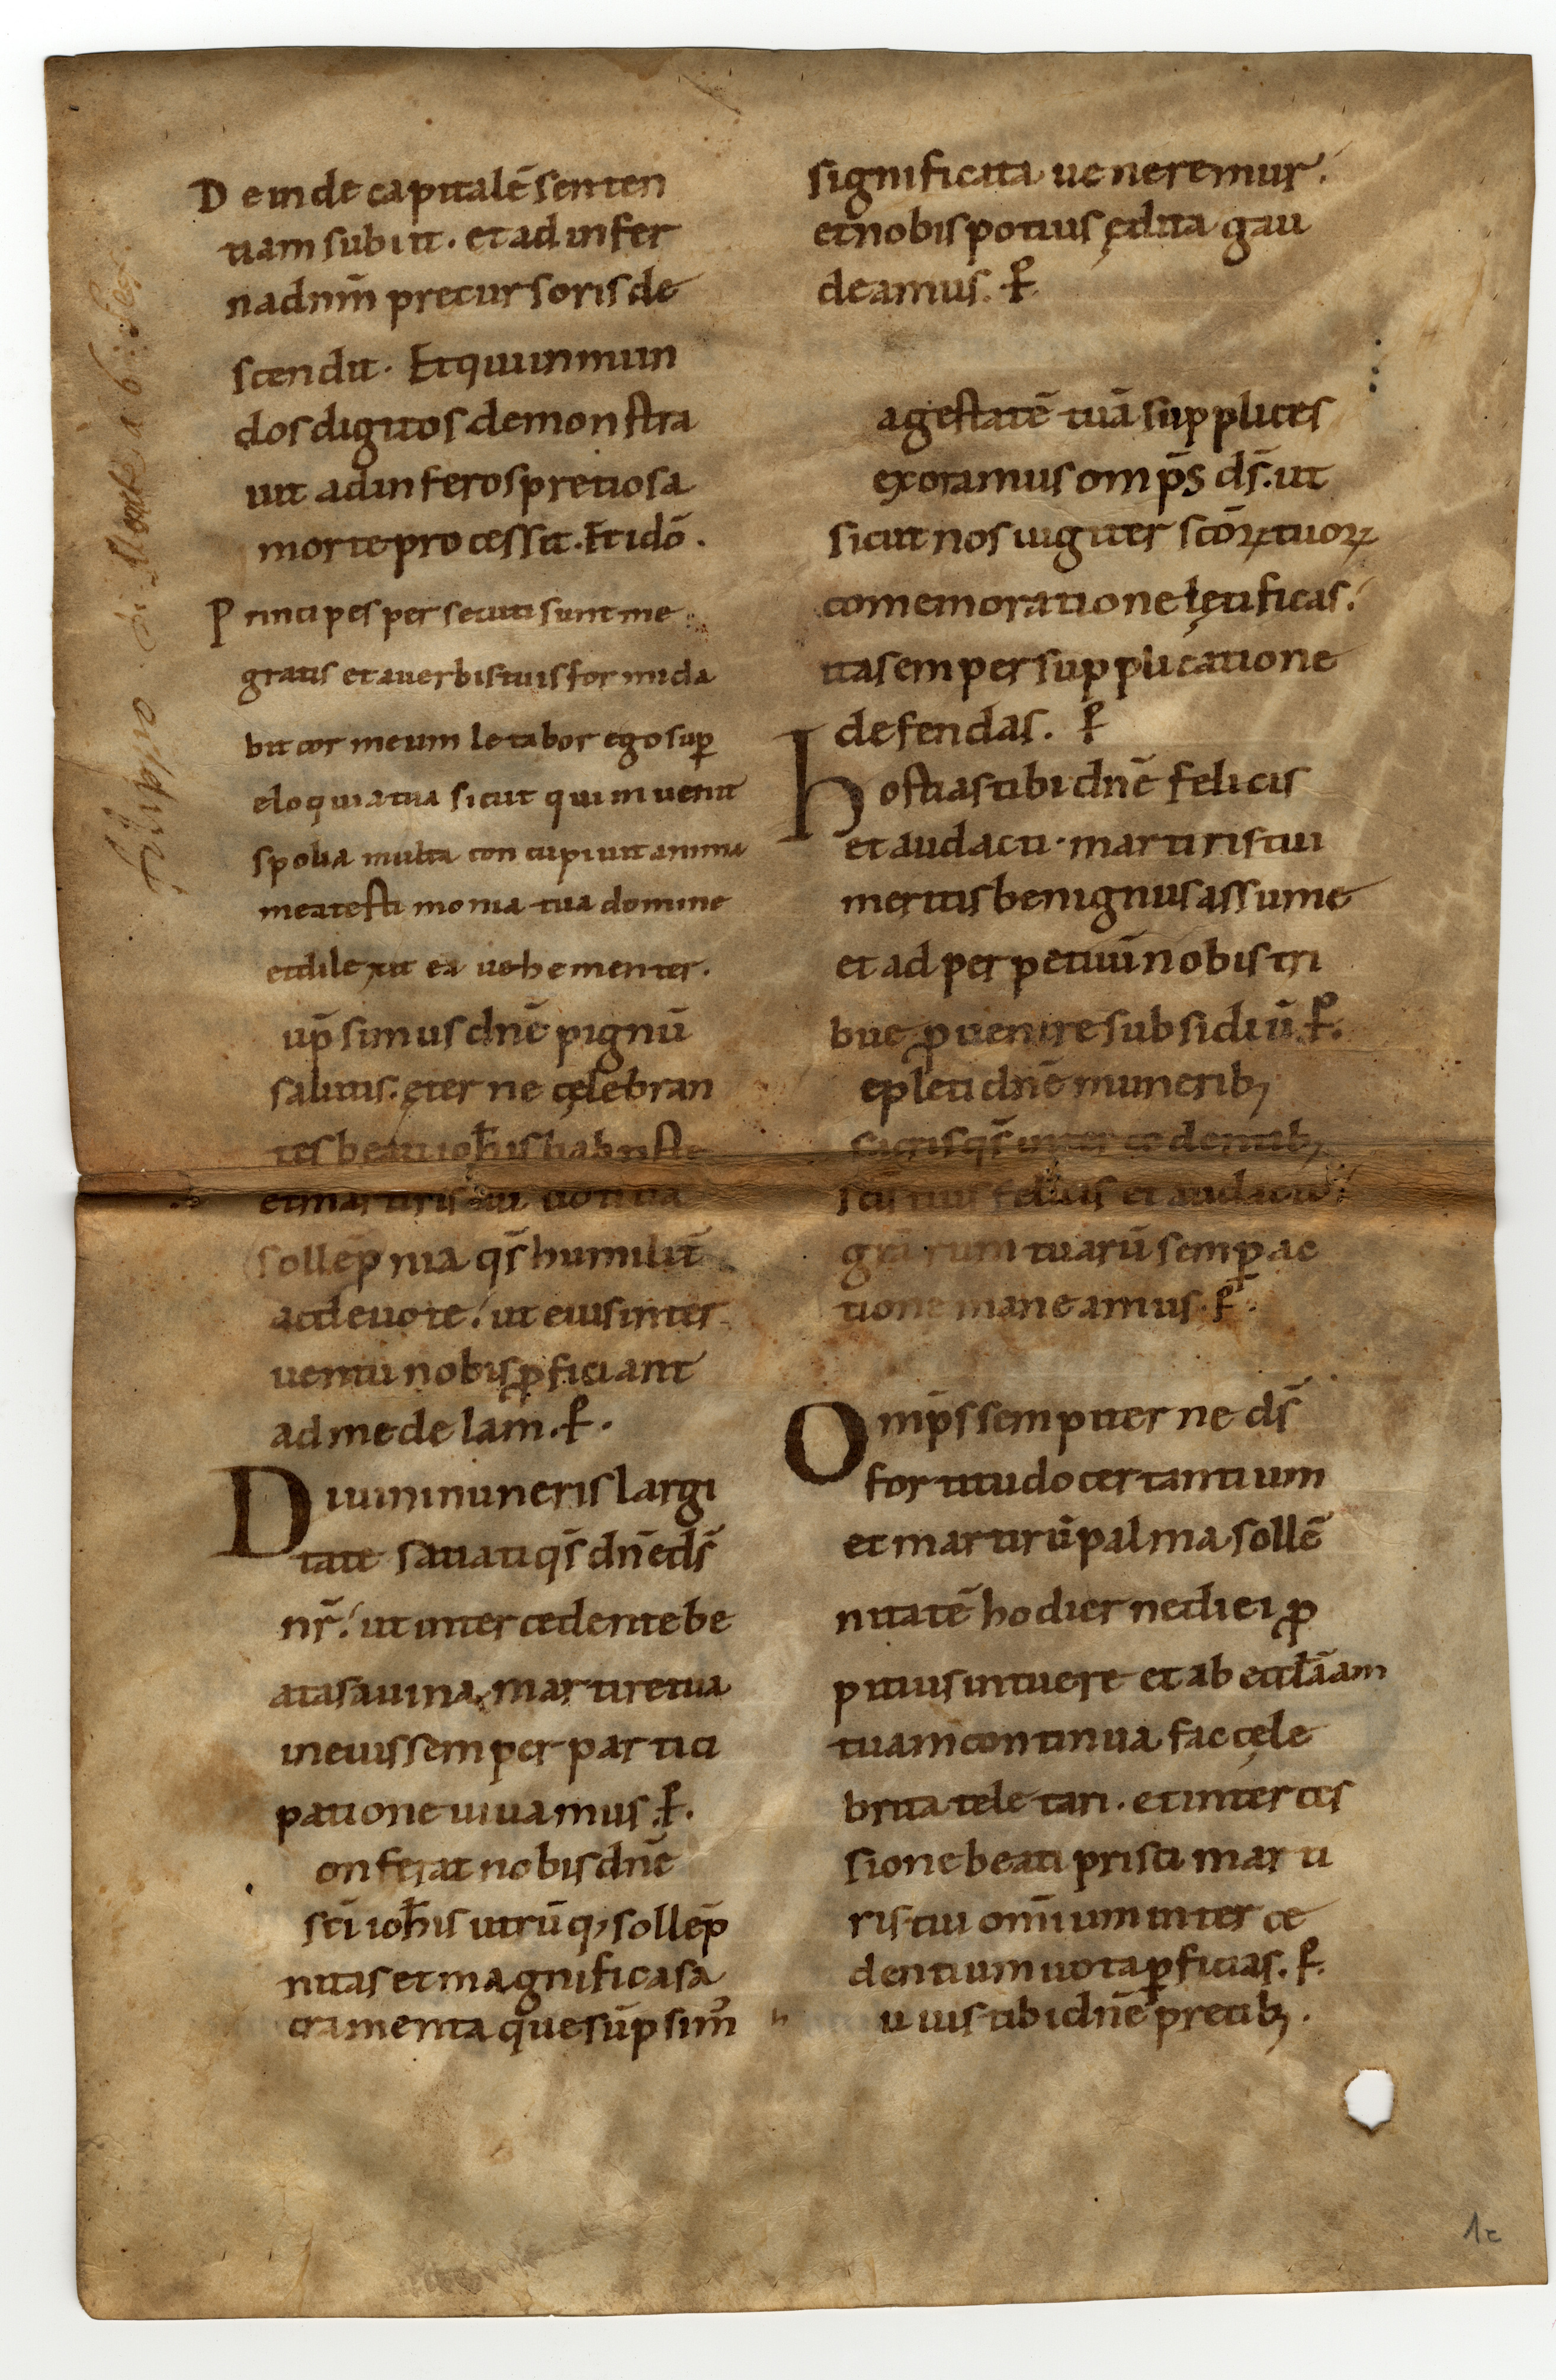 Deinde capitalē senten
tiam subiit. et ad infer
na dnm̄ precursoris de
scendit. Et qui in mun
do s digitos demonstra
uit ad inferos pretiosa
morte processit. Et idō.
Principes persecuti sunt me
gratis et a uerbis tuis formida
bit cor meum letabor ego sup̱
eloquia tua sicut qui inuenit
spolia multa concupiuit anima
mea testimonia tua domine
et dilexit ea uehementer.
up̄simus dnē pignū
salutis. ęterne cęlebran
tes beati ioh̄is babtiste
et martiris tui uotiua
sollep̄nia qs̄ humilit̄
ac deuote! ut eius inter
uentu nobis ꝓficiant
ad medelam. P.
Diuini muneris largi
tate satiati qs̄ dn̄e ds̄
nr̄! ut intercedente be
ata sauina martire tua
in eius semper partici
patione uiuamus. P.
onferat nobis dnē
sc̄i ioh̄is utrūq; sollep̄
nitas et magnifica sa
cramenta que sūpsim᷒
significata ueneremur!
et nobis potius ędita gau
deamus. P.
agestatē tuā supplices
exoramus omp̄s ds̄. ut
sicut nos iugiter sc̄oꝝ tuoꝝ
comemoratione lętificas!
ita semper supplicatione
defendas. P
Hostias tibi dnē felicis
et audacti martiris tui
meritis benignus assume
et ad perpetuū nobis tri
bue ꝓuenire subsidiū. P.
epleti dnē munerib;
sacris qs̄ intercedentib;
sc̄is tuis felicis et audacto
gr̄arum tuarū semp̱ ac
tione maneamus. P.
Omp̄s sempiterne ds̄
fortitudo certantium
et martirū palma sollē
nitatē hodierne diei ꝓ
pitius intuere et ab eccl̄aam
tuam continua fac cęle
britate letari. et interces
sione beati prisci marti
ris tui omīum in te cre
dentium uota p̱ficias. P.
uius tibi dnē precib;.
1r